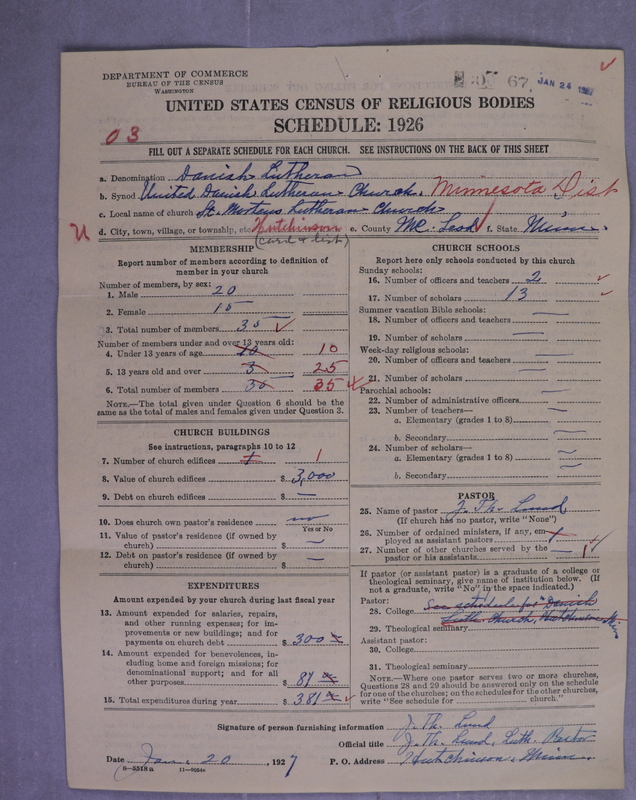 DEPARTMENT OF COMMERCE
BUREAU OF THE CENSUS
WASHINGTON
67
JAN 24
UNITED STATES CENSUS OF RELIGIOUS BODIES
SCHEDULE: 1926
03
FILL OUT A SEPARATE SCHEDULE FOR EACH CHURCH. SEE INSTRUCTIONS ON THE BACK OF THIS SHEET
a. Denomination Danish Lutheran
b. Synod United Danish Lutheran Church. Minnesota Dist
c. Local name of church St. Mortens Lutheran Church
d. City, town, village, or township, etc. Hutchinson e. County Mc. Leod f. State Minn.
(card & list)
MEMBERSHIP
Report number of members according to definition of
member in your church
Number of members, by sex:
1. Male 20
2. Female 15
3. Total number of members. 35
Number of members under and over 13 years old:
4. Under 13 years of age 10 10
5. 13 years old and over 25
6. Total number of members 35 35
NOTE.—The total given under Question 6 should be the
same as the total of males and females given under Question 3.
CHURCH BUILDINGS
See instructions, paragraphs 10 to 12
7. Number of church edifices 1 1
8. Value of church edifices $ 3,000
9. Debt on church edifices $ —
10. Does church own pastor's residence no
Yes or No
11. Value of pastor's residence (if owned by
church) $ —
12. Debt on pastor's residence (if owned by
church) $ —
EXPENDITURES
Amount expended by your church during last fiscal year
13. Amount expended for salaries, repairs,
and other running expenses; for im-
provements or new buildings; and for
payments on church debt $ 300
14. Amount expended for benevolences, in-
cluding home and foreign missions; for
denominational support; and for all
other purposes $ 81
15. Total expenditures during year $ 381
CHURCH SCHOOLS
Report here only schools conducted by this church
Sunday schools:
16. Number of officers and teachers 2
17. Number of scholars 13
Summer vacation Bible schools:
18. Number of officers and teachers —
19. Number of scholars —
Week-day religious schools:
20. Number of officers and teachers —
21. Number of scholars —
Parochial schools:
22. Number of administrative officers —
23. Number of teachers—
a. Elementary (grades 1 to 8) —
b. Secondary —
24. Number of scholars—
a. Elementary (grades 1 to 8) —
b. Secondary —
PASTOR
25. Name of pastor J. Th. Lund
(If church has no pastor, write "None")
26. Number of ordained ministers, if any, em-
ployed as assistant pastors
27. Number of other churches served by the
pastor or his assistants
If pastor (or assistant pastor) is a graduate of a college or
theological seminary, give name of institution below. (If
not a graduate, write "No" in the space indicated.)
Pastor:
28. College See schedule for "Danish
29. Theological seminary Luth. Church, Hutchinson
Assistant pastor:
30. College
31. Theological seminary
NOTE.—Where one pastor serves two or more churches,
Questions 28 and 29 should be answered only on the schedule
for one of the churches; on the schedules for the other churches,
write "See schedule for church."
Signature of person furnishing information J. Th. Lund
Official title J. Th. Lund, Luth. Pastor
Date Jan. 20, 1927 P. O. Address Hutchinson, Minn.
8—5518a 11—9054